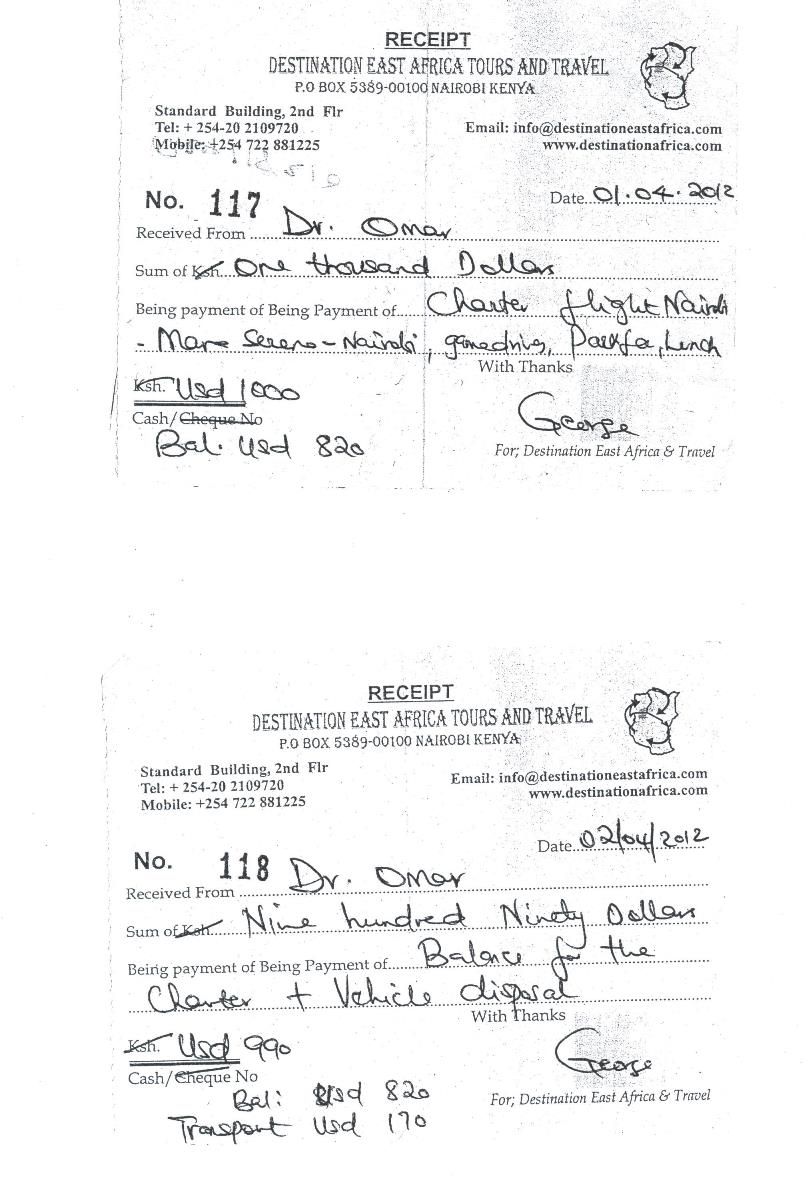 RECEIPT
DESTINATION EAST AFRICA TOURS AND TRAVEL
P.O BOX 5389-00100 NAIROBI KENYA
Standard Building, 2nd Flr
Tel: + 254-20 2109720
Mobile: +254 722 881225
Email: info@destinationeastafrica.com
www.destinationafrica.com
No. 117
Date 01.04.2012
Received From Dr. Omar
Sum of Ksh. One thousand Dollars
Being payment of Being Payment of Charter flight Nairobi
- Mara Serena - Nairobi, gamedrives, Parkfee, Lunch
With Thanks
Ksh. Usd 1000
Cash/Cheque No
Bal. Usd 820
George
For; Destination East Africa & Travel
RECEIPT
DESTINATION EAST AFRICA TOURS AND TRAVEL
P.O BOX 5389-00100 NAIROBI KENYA
Standard Building, 2nd Flr
Tel: + 254-20 2109720
Mobile: +254 722 881225
Email: info@destinationeastafrica.com
www.destinationafrica.com
No. 118
Date 02/04/2012
Received From Dr. Omar
Sum of Ksh Nine hundred Ninety Dollars
Being payment of Being Payment of Balance for the
Charter + Vehicle disposal
With Thanks
Ksh. Usd 990
Cash/Cheque No
Bal: Usd 820
Transport Usd 170
George
For; Destination East Africa & Travel